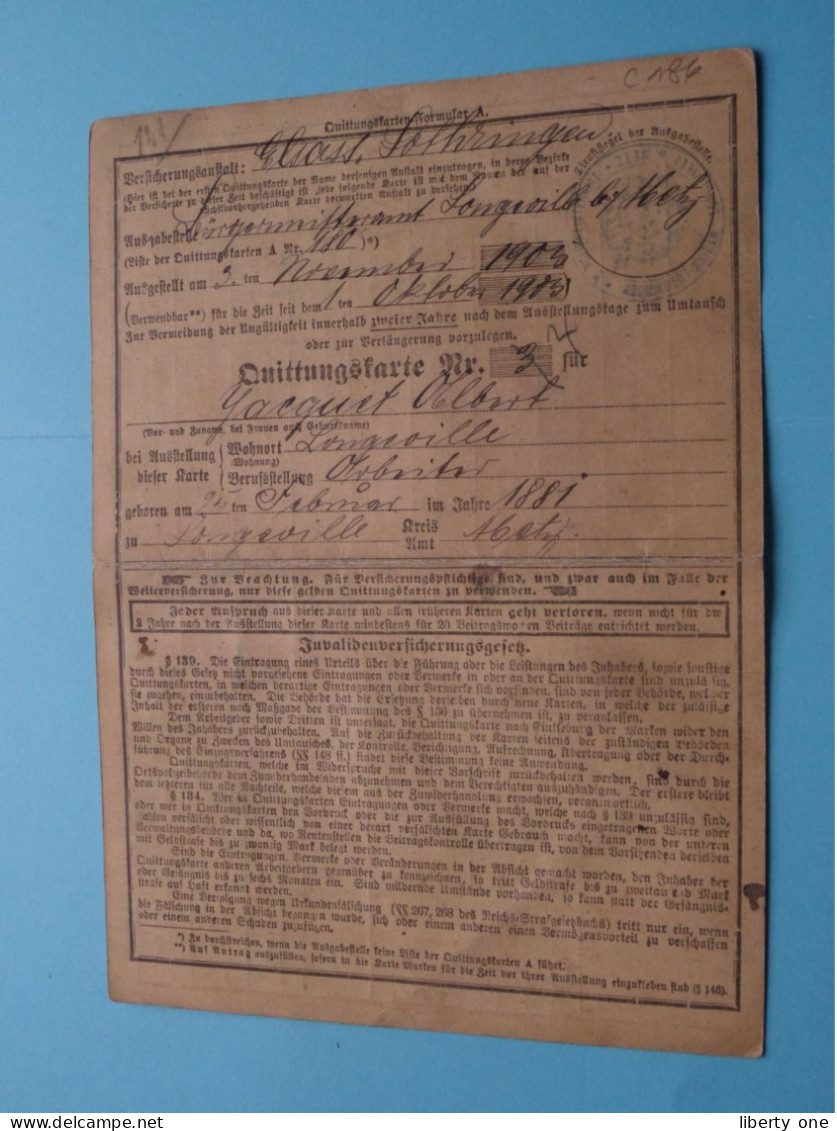 C 186
Quittungskarten-Formular A.
Versicherungsanstalt: Elsass. Lothringen
(Hier ist bei der ersten Quittungskarte der Name derjenigen Anstalt einzutragen, in deren Bezirke
der Versicherte zu dieser Zeit beschäftigt ist jede folgende Karte ist mit dem Namen der auf der
nächstvorhergehenden Karte vermerkten Anstalt zu versehen)
Dienstsiegel der Ausgabestelle.
Ausgabestelle Bürgermeisteramt Longeville bei Metz
(Liste der Quittungskarten A Nr. 180 )*)
Ausgestellt am 3. ten November 1903
(Verwendbar**) für die Zeit seit dem 1 ten Oktober 1903)
Zur Vermeidung der Ungültigkeit innerhalb zweier Jahre nach dem Ausstellungstage zum Umtausch
oder zur Verlängerung vorzulegen.
Quittungskarte Nr. 3 für
Jacquet Albert
(Vor- und Zuname, bei Frauen auch Geburtsname)
bei Ausstellung dieser Karte
Wohnort Longeville
(Wohnung)
Berufsstellung Arbeiter
geboren am ten Februar im Jahre 1881
zu Longeville Kreis Amt Metz.
Zur Beachtung. Für Versicherungspflichtige sind, und zwar auch im Falle der
Weiterversicherung, nur diese gelben Quittungskarten zu verwenden.
Jeder Anspruch aus dieser Karte und allen früheren Karten geht verloren, wenn nicht für die
2 Jahre nach der Ausstellung dieser Karte mindestens für 20 Beitragswochen Beiträge entrichtet werden.
Invalidenversicherungsgesetz.
§ 139. Die Eintragung eines Urteils über die Führung oder die Leistungen des Inhabers, sowie sonstige
durch dieses Gesetz nicht vorgesehene Eintragungen oder Vermerke in oder an der Quittungskarte sind unzulässig.
Quittungskarten, in welchen derartige Eintragungen oder Vermerke sich vorfinden, sind von jeder Behörde, welcher
sie zugehen, einzubehalten. Die Behörde hat die Ersetzung derselben durch neue Karten, in welche der zulässige
Inhalt der ersteren nach Maßgabe der Bestimmung des § 136 zu übernehmen ist, zu veranlassen.
Dem Arbeitgeber sowie Dritten ist untersagt, die Quittungskarte nach Einklebung der Marken wider den
Willen des Inhabers zurückzubehalten. Auf die Zurückbehaltung der Karten seitens der zuständigen Behörden
und Organe zu Zwecken des Umtausches, der Kontrolle, Berichtigung, Aufrechnung, Übertragung oder der Durch-
führung des Einzugsverfahrens (§§ 148 ff.) findet diese Bestimmung keine Anwendung.
Quittungskarten, welche im Widerspruche mit dieser Vorschrift zurückbehalten werden, sind durch die
Ortspolizeibehörde dem Zuwiderhandelnden abzunehmen und dem Berechtigten auszuhändigen. Der erstere bleibt
dem letzteren für alle Nachteile, welche diesem aus der Zuwiderhandlung erwachsen, verantwortlich.
§ 184. Wer in Quittungskarten Eintragungen oder Vermerke macht, welche nach § 139 unzulässig sind,
oder wer in Quittungskarten den Vordruck oder die zur Ausfüllung des Vordrucks eingetragenen Worte oder
Zahlen verfälscht oder wissentlich von einer derart verfälschten Karte Gebrauch macht, kann von der unteren
Verwaltungsbehörde und da, wo Rentenstellen die Beitragskontrolle übertragen ist, von dem Vorsitzenden derselben
mit Geldstrafe bis zu zwanzig Mark belegt werden.
Sind die Eintragungen, Vermerke oder Veränderungen in der Absicht gemacht worden, den Inhaber der
Quittungskarte anderen Arbeitgebern gegenüber zu kennzeichnen, so tritt Geldstrafe bis zu zweitausend Mark
oder Gefängnis bis zu sechs Monaten ein. Sind mildernde Umstände vorhanden, so kann statt der Gefängnis-
strafe auf Haft erkannt werden.
Eine Verfolgung wegen Urkundenfälschung (§§ 267, 268 des Reichs-Strafgesetzbuchs) tritt nur ein, wenn
die Fälschung in der Absicht begangen wurde, sich oder einem anderen einen Vermögensvorteil zu verschaffen
oder einem anderen Schaden zuzufügen.
*) Zu durchstreichen, wenn die Ausgabestelle keine Liste der Quittungskarten A führt.
**) Auf Antrag auszufüllen, sofern in die Karte Marken für die Zeit vor ihrer Ausstellung einzukleben sind (§ 146).
liberty one